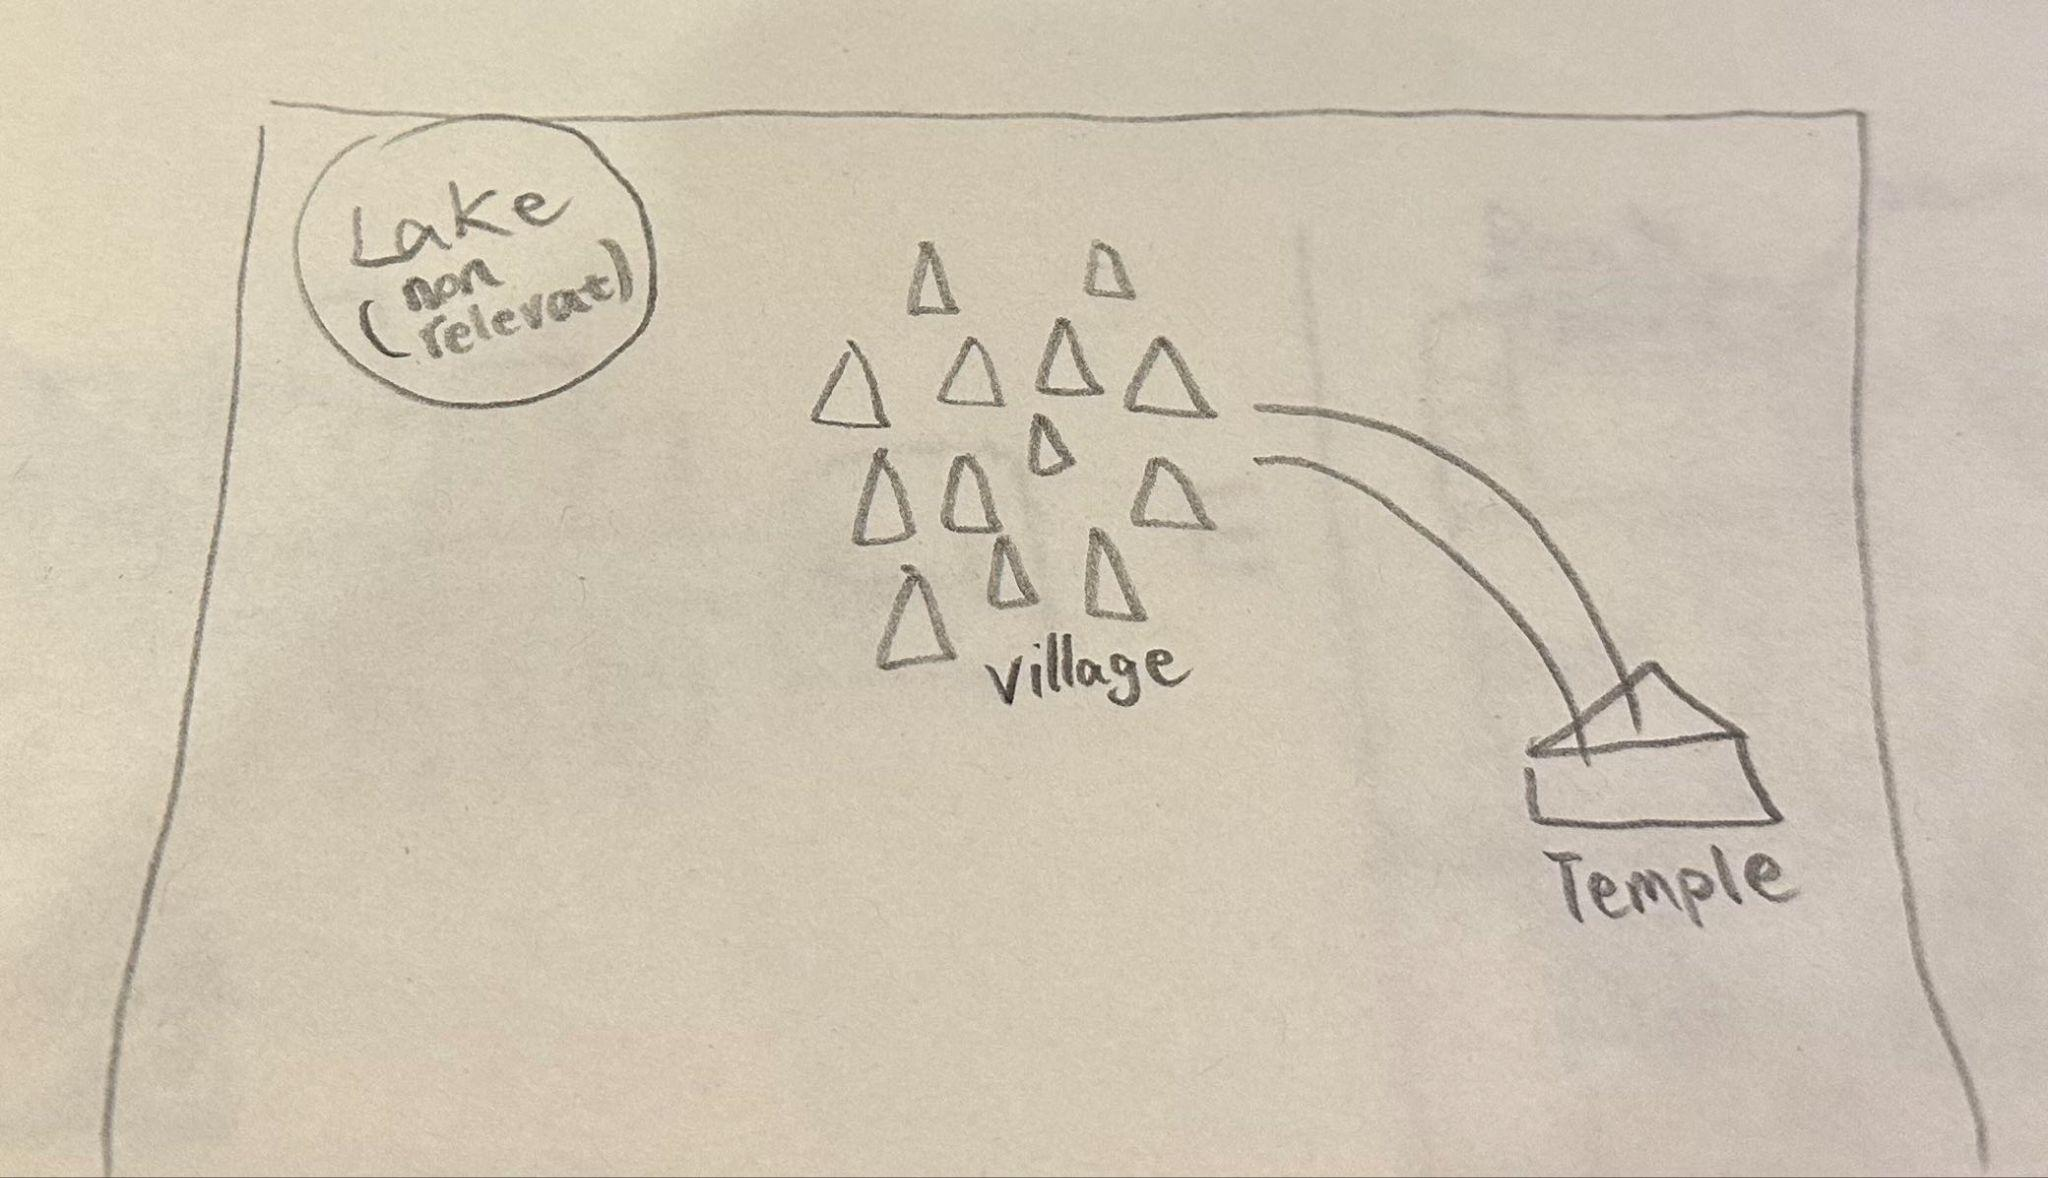 Lake
(non
relevat)
village
Temple